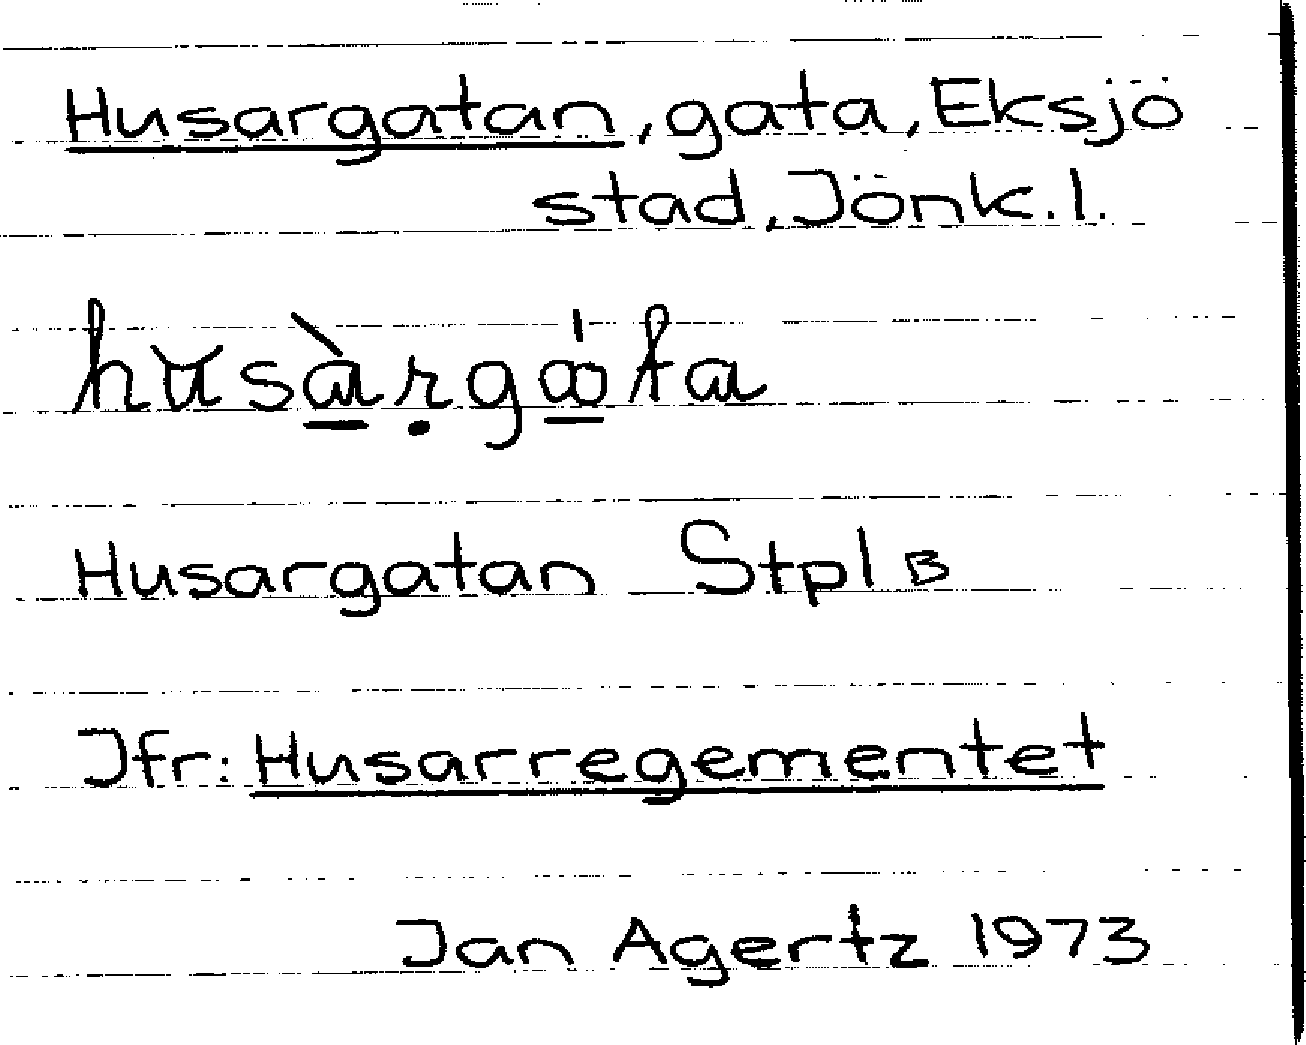 Husargatan, gata, Eksjö
stad, Jönk.l.
husàrgáta
Husargatan Stpl B
Jfr: Husarregementet
Jan Agertz 1973